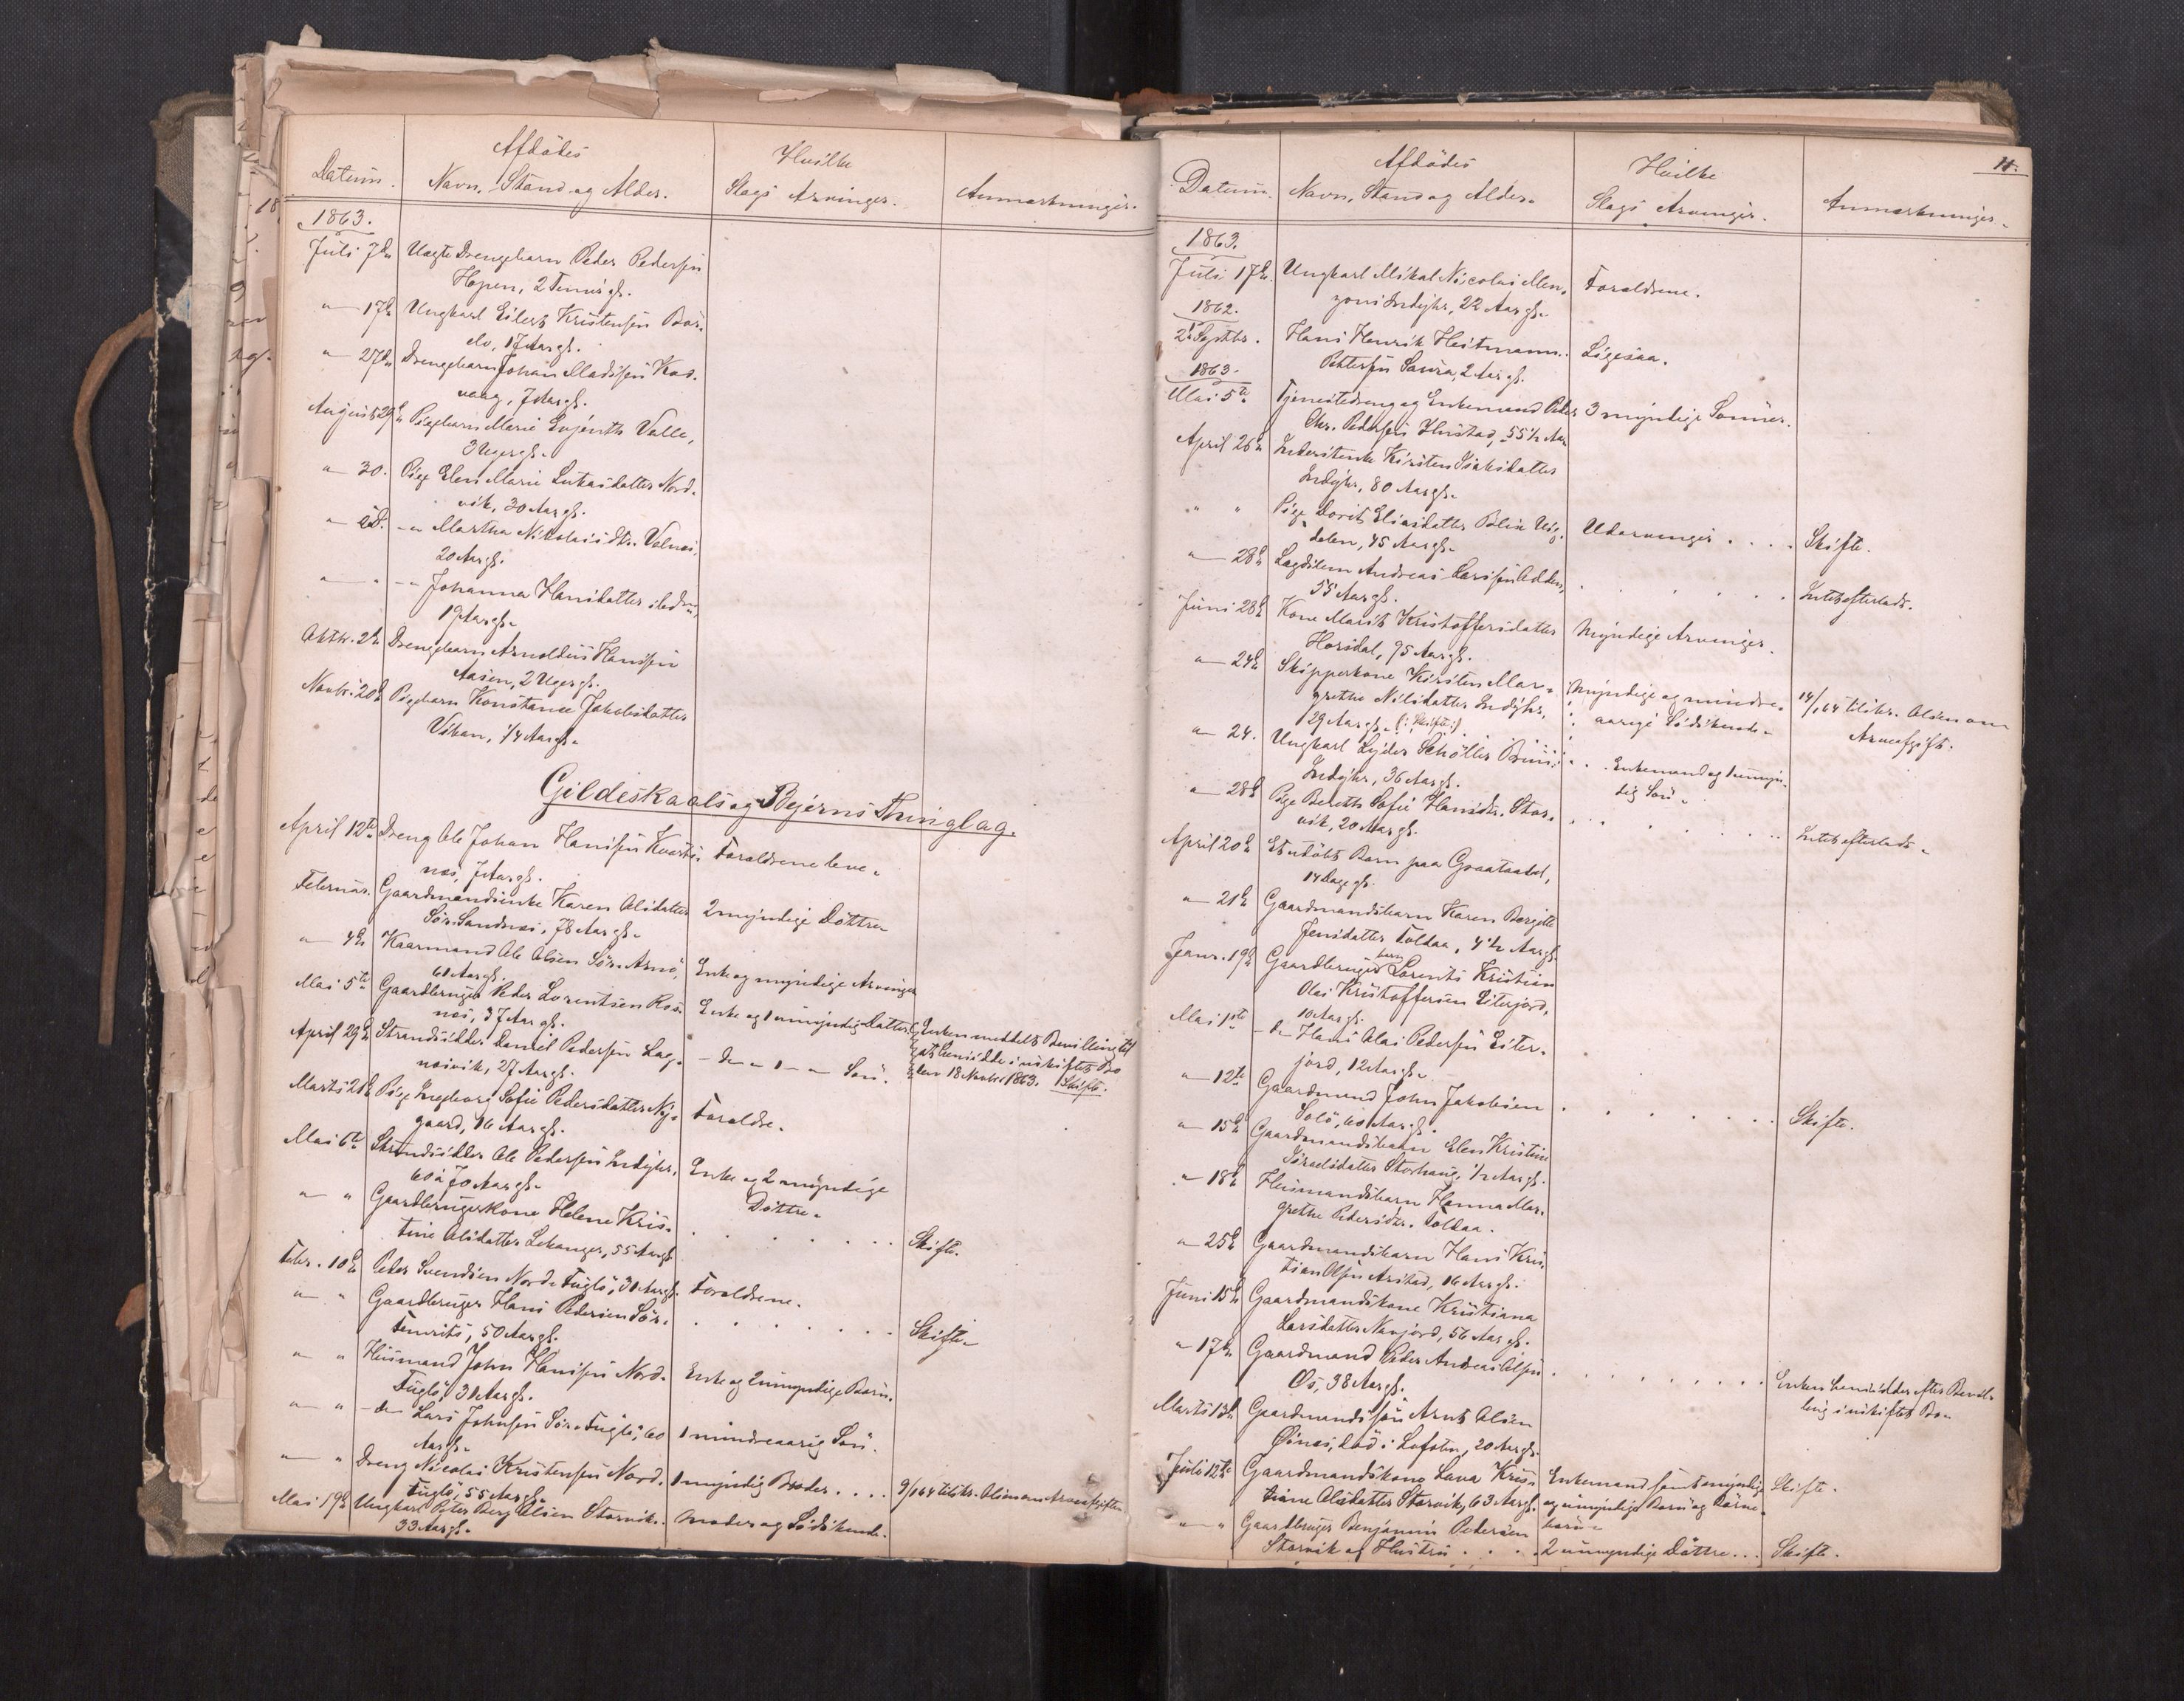 Afdødes
Hvilke
Datum. Navn, Stand og Alder. Slags Arvinger. Anmærkninger.
1863.
Juli 7de Uægte Drengebarn Peder Pedersen
Hopen, 2 Timer gl.
" 17de Ungkarl Eilert Kristensen
17 Aar gl.
" 27de Drengebarn Johan Madsen
vaag, 7 Aar gl.
August 29de Pigebarn Marie Valle,
3 Uger gl.
" 30. Pige Elen Marie Lukasdatter Nord-
vik, 30 Aar gl.
" id. -"- Martha Nikolaisdtr. Valnes,
20 Aar gl.
" " -"- Johanna Hansdatter
19 Aar gl.
Oktbr. 2de Drengebarn Arnoldus Hansen
Aasen, 2 Uger gl.
Novbr. 20de Pigebarn Konstance Jakobsdatter
Vikan, 1/4 Aar gl.
Gildeskaals og Bejerns Thinglag.
April 12te Dreng Ole Johan Hansen
næs, 7 Aar gl. Forældrene leve.
Februar. Gaardmandsenke Karen Olsdatter
Sør. Sandnæs, 78 Aar gl. 2 myndige Døttre
" 4de Kaarmand Ole Olsen Sør. Arnø,
61 Aar gl. Enke og myndige Arvinger
Mai 5te Gaardbruger Peder Lorentsen
næs, 37 Aar gl. Enke og 1 umyndig Datter. Enken meddelt Bevilling til
at hensidde i uskiftet Bo
den 18 Novbr. 1863. Skifte.
April 29de Strandsidder Daniel Pedersen Lag-
næsvik, 27 Aar gl. -do- " 1 -"- Søn.
Marts 21de Pige Ingeborg Sofie Pedersdatter Ny-
gaard, 16 Aar gl. Forældre.
Mai 6te Strandsidder Ole Pedersen Indyhr,
60 à 70 Aar gl. Enke og 2 myndige
Døttre.
" " Gaardbrugerkone Helene Kris-
tine Olsdatter Lekanger, 55 Aar gl. . . . Skifte.
Febr. 10de Peder Svendsen Nord. Fuglø, 31 Aar gl. Forældrene.
" " Gaardbruger Hans Pedersen Sør.
50 Aar gl. . . . Skifte.
" " Husmand John Hansen Nord.
Fuglø, 31 Aar gl. Enke og 2 umyndige Børn.
" " -do- Lars Johnsen Sør. Fuglø, 60
Aar gl. 1 mindreaarig Søn.
" " Dreng Nicolai Kristensen Nord.
Fuglø, 55 Aar gl. 1 myndig Broder . . . . 9/1 64 tilskr. Olsen om Arveafgiften
Mai 19de Ungkarl Peter Berg Olsen Storvik.
33 Aar gl. Moder og Sødskende.
11.
Afdødes
Hvilke
Datum. Navn, Stand og Alder. Slags Arvinger. Anmærkninger.
1863.
Juli 17de. Ungkarl Mikal Nicolai
Indyhr, 22 Aar gl. Forældrene.
1862.
2. Septbr. Hans Henrik Heitmann
Pettersen Saura, 2 Aar gl. Ligesaa.
1863.
Mai 5te Tjenestedreng og Enkemand Peder
Chr. Pedersen Hustad, 55 1/2 Aar 3 myndige Sønner.
April 26de Inderstenke Kirsten Isaksdatter
Indyhr, 80 Aar gl.
" " Pige Dorit Eliasdatter
dalen, 45 Aar gl. Udarvinger . . . . Skifte.
" 28de Lægdslem Andreas Larsen
55 Aar gl. . . . Intet efterladt.
Juni 28de Kone Marit Kristoffersdatter
Horsdal, 75 Aar gl. Myndige Arvinger.
" 24de Skipperkone Kirsten Mar-
grethe Nilsdatter Indyhr,
29 Aar gl. (: Skifte :) Myndige og mindre-
aarige Sødskende. 14/1 64 tilskr. Olsen om
Arveafgift.
" 24. Ungkarl Lyder Schøller
Indyhr, 36 Aar gl. Enkemand og 1 umyn-
dig Søn.
" 28de Pige Bereth Sofie Hansdtr. Stor-
vik, 20 Aar gl. . . . Intet efterladt.
April 20de Et udøbt Barn paa Graataadal,
14 Dage gl.
" 21de Gaardmandsbarn Karen Bergitte
Jensdatter Toldaa, 4 1/2 Aar gl.
Janr. 19de Gaardbrugerbarn Lorents Kristian
Olai Kristoffersen Eiterjord,
10 Aar gl.
Mai 1ste -do- Hans Olai Pedersen Eiter-
jord, 12 Aar gl.
" 12te Gaardmand John Jakobsen
Solø, 60 Aar gl. . . . Skifte.
" 15de Gaardmandsbarn Elen Kristine
Israelsdatter Storhaug, 1/2 Aar gl.
" 18de Husmandsbarn Hanna Mar-
grethe Pedersdtr. Toldaa.
" 25de Gaardmandsbarn Hans Kris-
tian Olsen Arstad, 16 Aar gl.
Juni 15de Gaardmandskone Kristiana
Larsdatter Navjord, 56 Aar gl.
" 17de Gaardmand Peder Andreas Olsen
Os, 38 Aar gl. . . . Enken hensidder efter Bevil-
ling i uskiftet Bo.
Marts 13de Gaardmandssøn Arnt Olsen
Øines, død i Lofoten, 20 Aar gl.
Juli 12te Gaardmandskone Lava Kris-
tiane Olsdatter Storvik, 63 Aar gl. Enkemand samt myndige
og umyndige Børn og Børne-
børn. Skifte.
" " Gaardbruger Benjamin Pedersen
Storvik og Hustru . . . . 2 umyndige Døttre . . . Skifte.